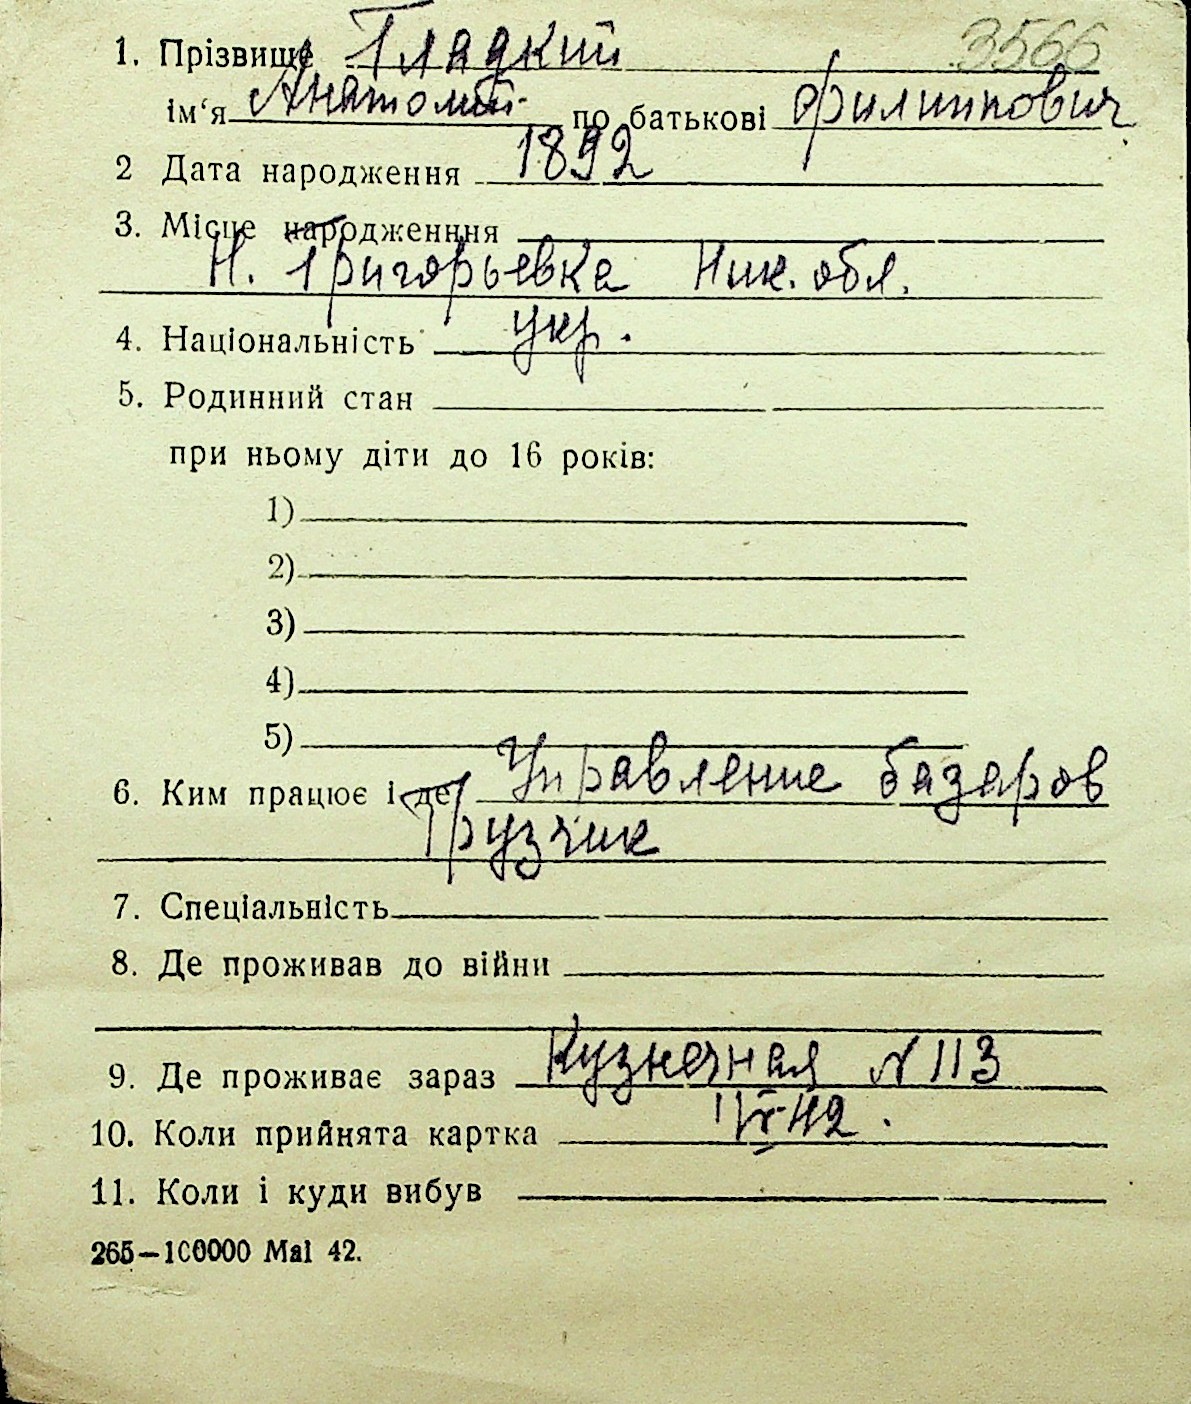 3566
1. Прізвище Гладкий
ім‘я Анатолий по батькові Филиппович
2 Дата народження 1892
3. Місце народженння
Н. Григорьевка Ник. обл.
4. Національність укр.
5. Родинний стан
при ньому діти до 16 років:
1)
2)
3)
4)
5)
6. Ким працює і де Управление базаров
Грузчик
7. Спеціальність
8. Де проживав до війни
9. Де проживає зараз Кузнечная № 113
10. Коли прийнята картка 42.
11. Коли і куди вибув
265—100000 Mai 42.